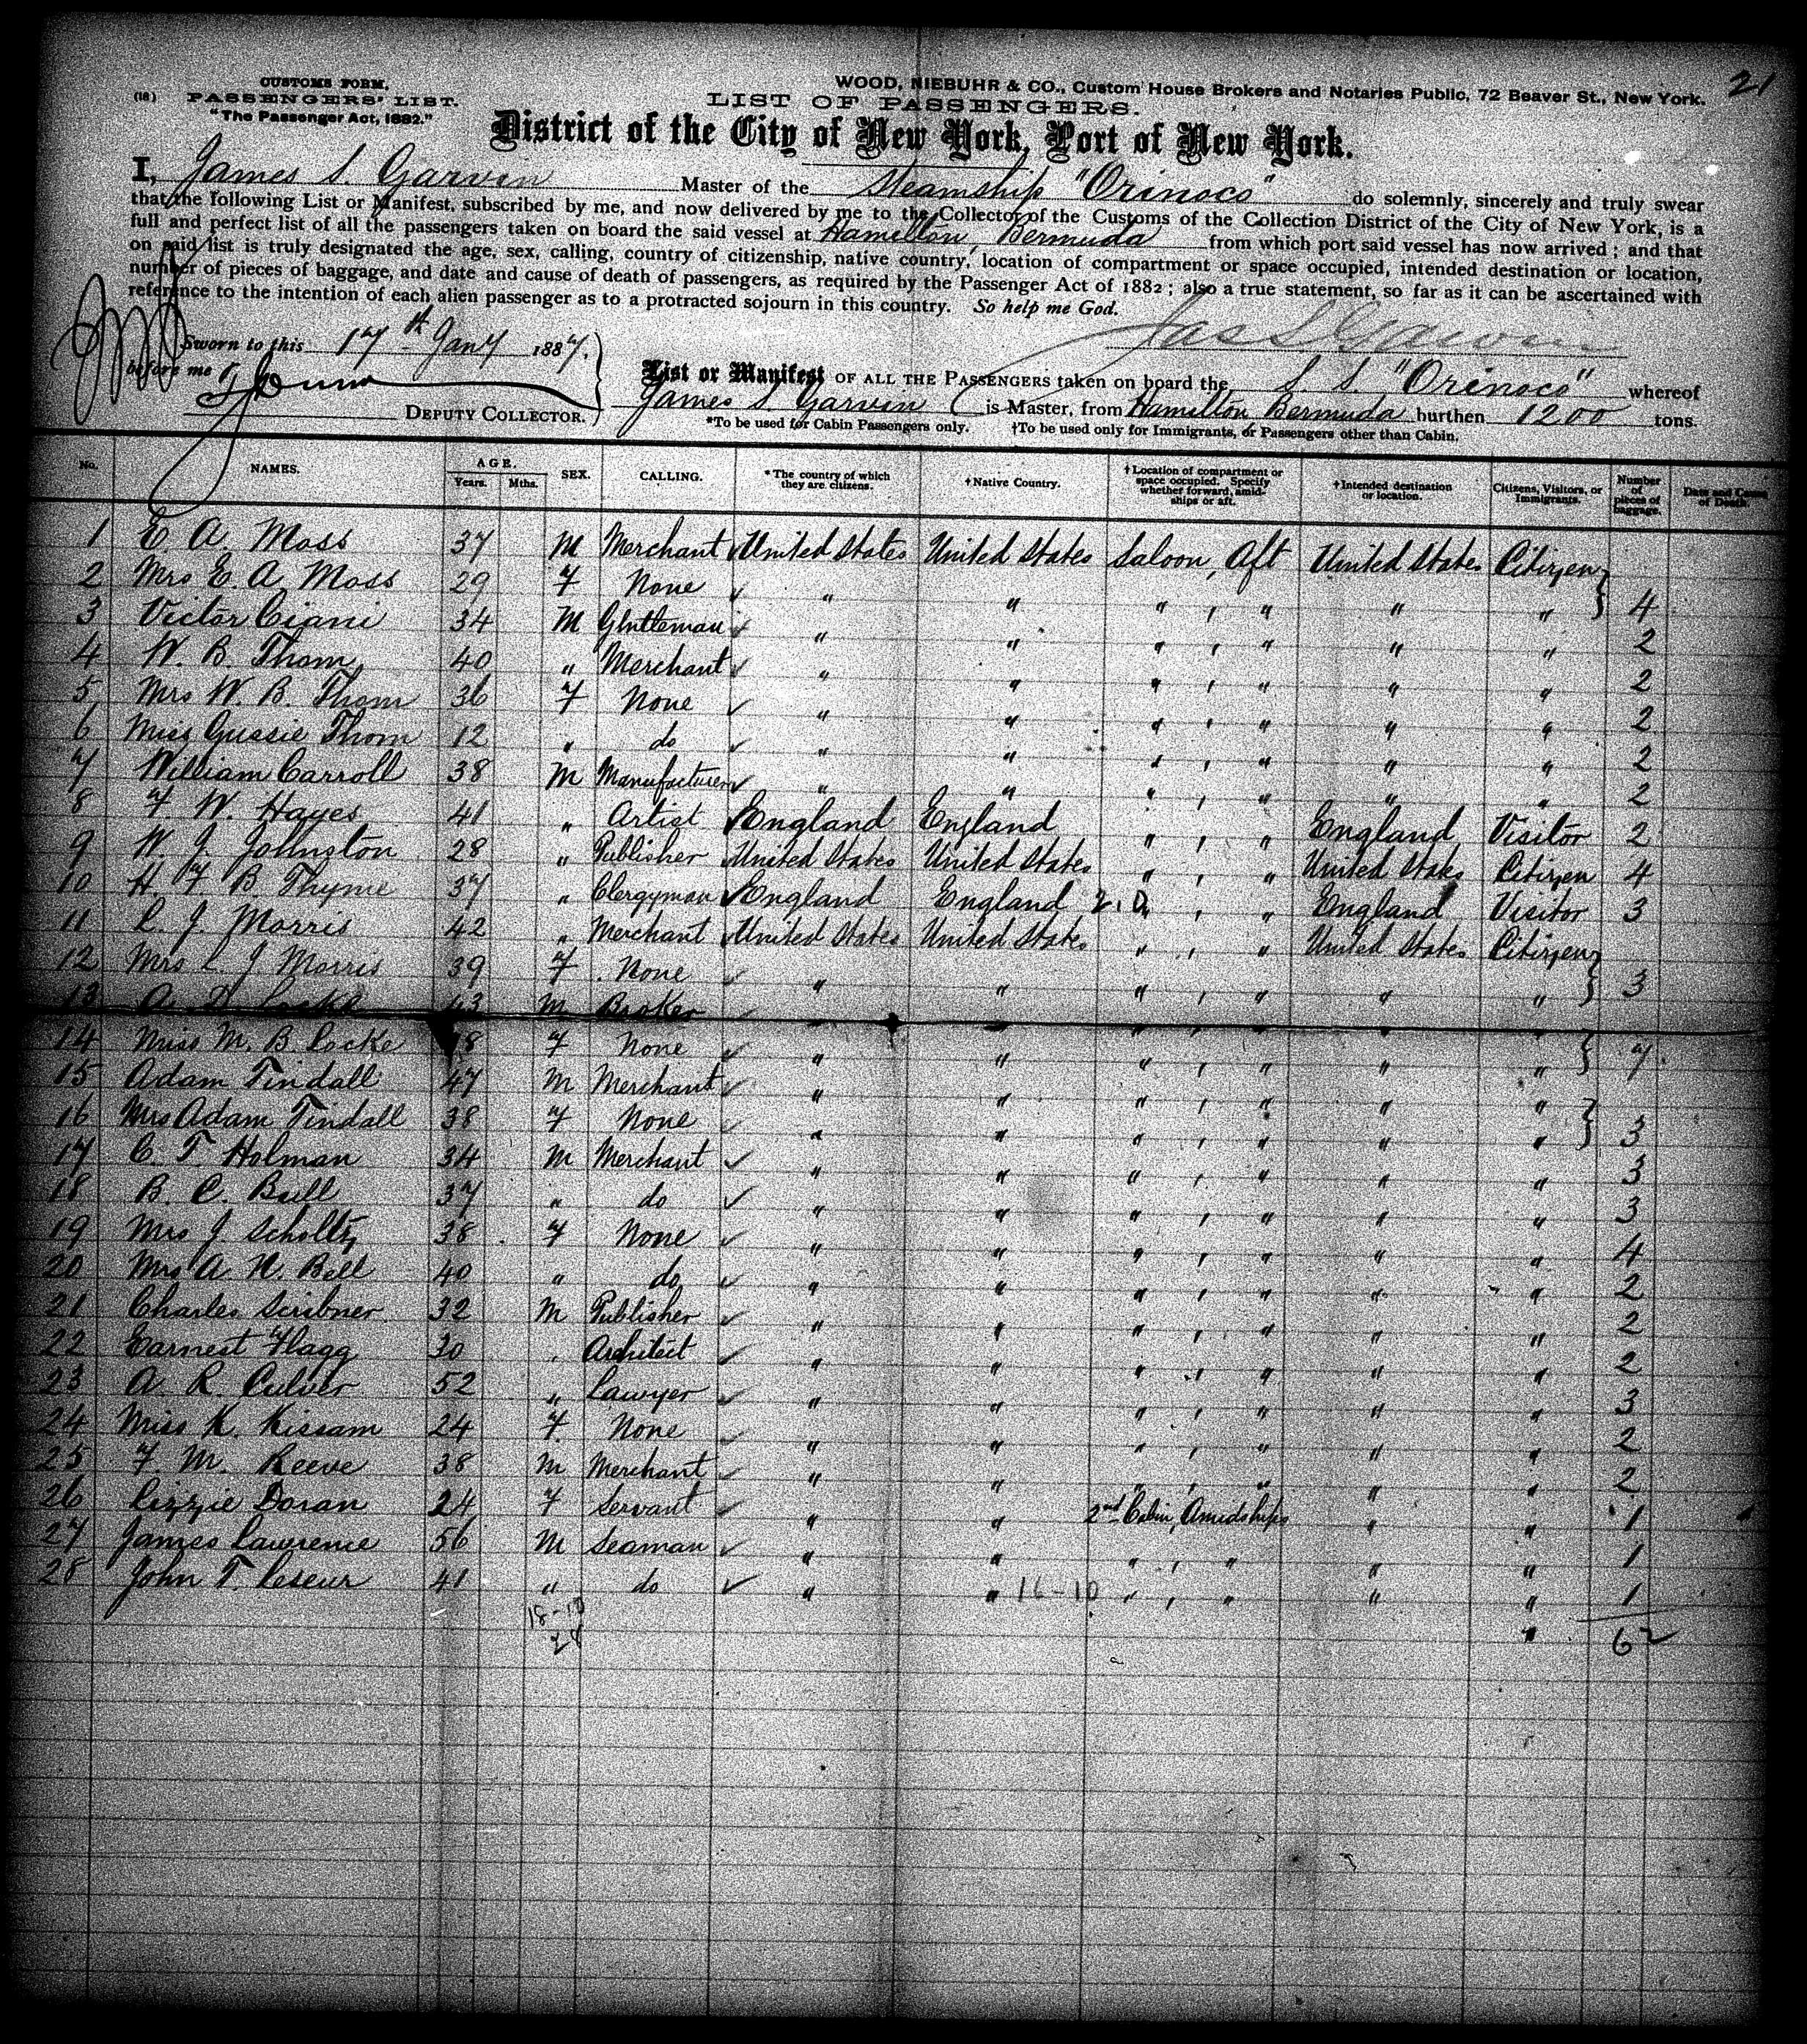 21
CUSTOMS FORM.
WOOD, NIEBUHR & CO., Custom House Brokers and Notaries Public, 72 Beaver St., New York.
(18) PASSENGERS' LIST.
LIST OF PASSENGERS.
"The Passenger Act, 1882."
District of the City of New York, Port of New York.
I, James S. Garvin Master of the Steamship "Orinoco" do solemnly, sincerely and truly swear
that the following List or Manifest, subscribed by me, and now delivered by me to the Collector of the Customs of the Collection District of the City of New York, is a
full and perfect list of all the passengers taken on board the said vessel at Hamilton, Bermuda from which port said vessel has now arrived; and that
on said list is truly designated the age, sex, calling, country of citizenship, native country, location of compartment or space occupied, intended destination or location,
number of pieces of baggage, and date and cause of death of passengers, as required by the Passenger Act of 1882; also a true statement, so far as it can be ascertained with
reference to the intention of each alien passenger as to a protracted sojourn in this country. So help me God.
Jas S Garvin
Sworn to this 17th Jany 1887.
before me
DEPUTY COLLECTOR.
List or Manifest OF ALL THE PASSENGERS taken on board the S. S. "Orinoco" whereof
James S. Garvin is Master, from Hamilton, Bermuda burthen 1200 tons.
*To be used for Cabin Passengers only. †To be used only for Immigrants, or Passengers other than Cabin.
No. NAMES. AGE. Years. Mths. SEX. CALLING. *The country of which they are citizens. †Native Country. †Location of compartment or space occupied. Specify whether forward, amidships or aft. †Intended destination or location. Citizens, Visitors, or Immigrants. Number of pieces of baggage. Date and Cause of Death.
1 E. A. Moss 37 M Merchant United States United States Saloon, Aft United States Citizen
2 Mrs E. A. Moss 29 F None " " " , " " " 4
3 Victor Ciani 34 M Gentleman " " " , " " " 2
4 W. B. Thom 40 " Merchant " " " , " " " 2
5 Mrs W. B. Thom 36 F None " " " , " " " 2
6 Miss Gussie Thom 12 " do " " " , " " " 2
7 William Carroll 38 M Manufacturer " " " , " " " 2
8 F. W. Hayes 41 " Artist England England " , " England Visitor 2
9 W. J. Johnston 28 " Publisher United States United States " , " United States Citizen 4
10 H. F. B. Thyme 37 " Clergyman England England " , " England Visitor 3
11 L. J. Morris 42 " Merchant United States United States " , " United States Citizen
12 Mrs L. J. Morris 39 F None " " " , " " " 3
13 A. D. Locke 43 M Broker " " " , " " "
14 Miss M. B. Locke 8 F None " " " , " " " 7
15 Adam Tindall 47 M Merchant " " " , " " "
16 Mrs Adam Tindall 38 F None " " " , " " " 3
17 C. T. Holman 34 M Merchant " " " , " " " 3
18 B. C. Bull 37 " do " " " , " " " 3
19 Mrs J Scholtz 38 F None " " " , " " " 4
20 Mrs A. N. Bell 40 " do " " " , " " " 2
21 Charles Scribner 32 M Publisher " " " , " " " 2
22 Earnest Flagg 30 " Architect " " " , " " " 2
23 A. R. Culver 52 " Lawyer " " " , " " " 3
24 Miss K. Kissam 24 F None " " " , " " " 2
25 F. M. Reeve 38 M Merchant " " " , " " " 2
26 Lizzie Doran 24 F Servant " " 2nd Cabin, Amidships " " 1
27 James Lawrence 56 M Seaman " " " , " " " 1
28 John T. Leseur 41 " do " " 16-10 " , " " " 1
18-10
28
62